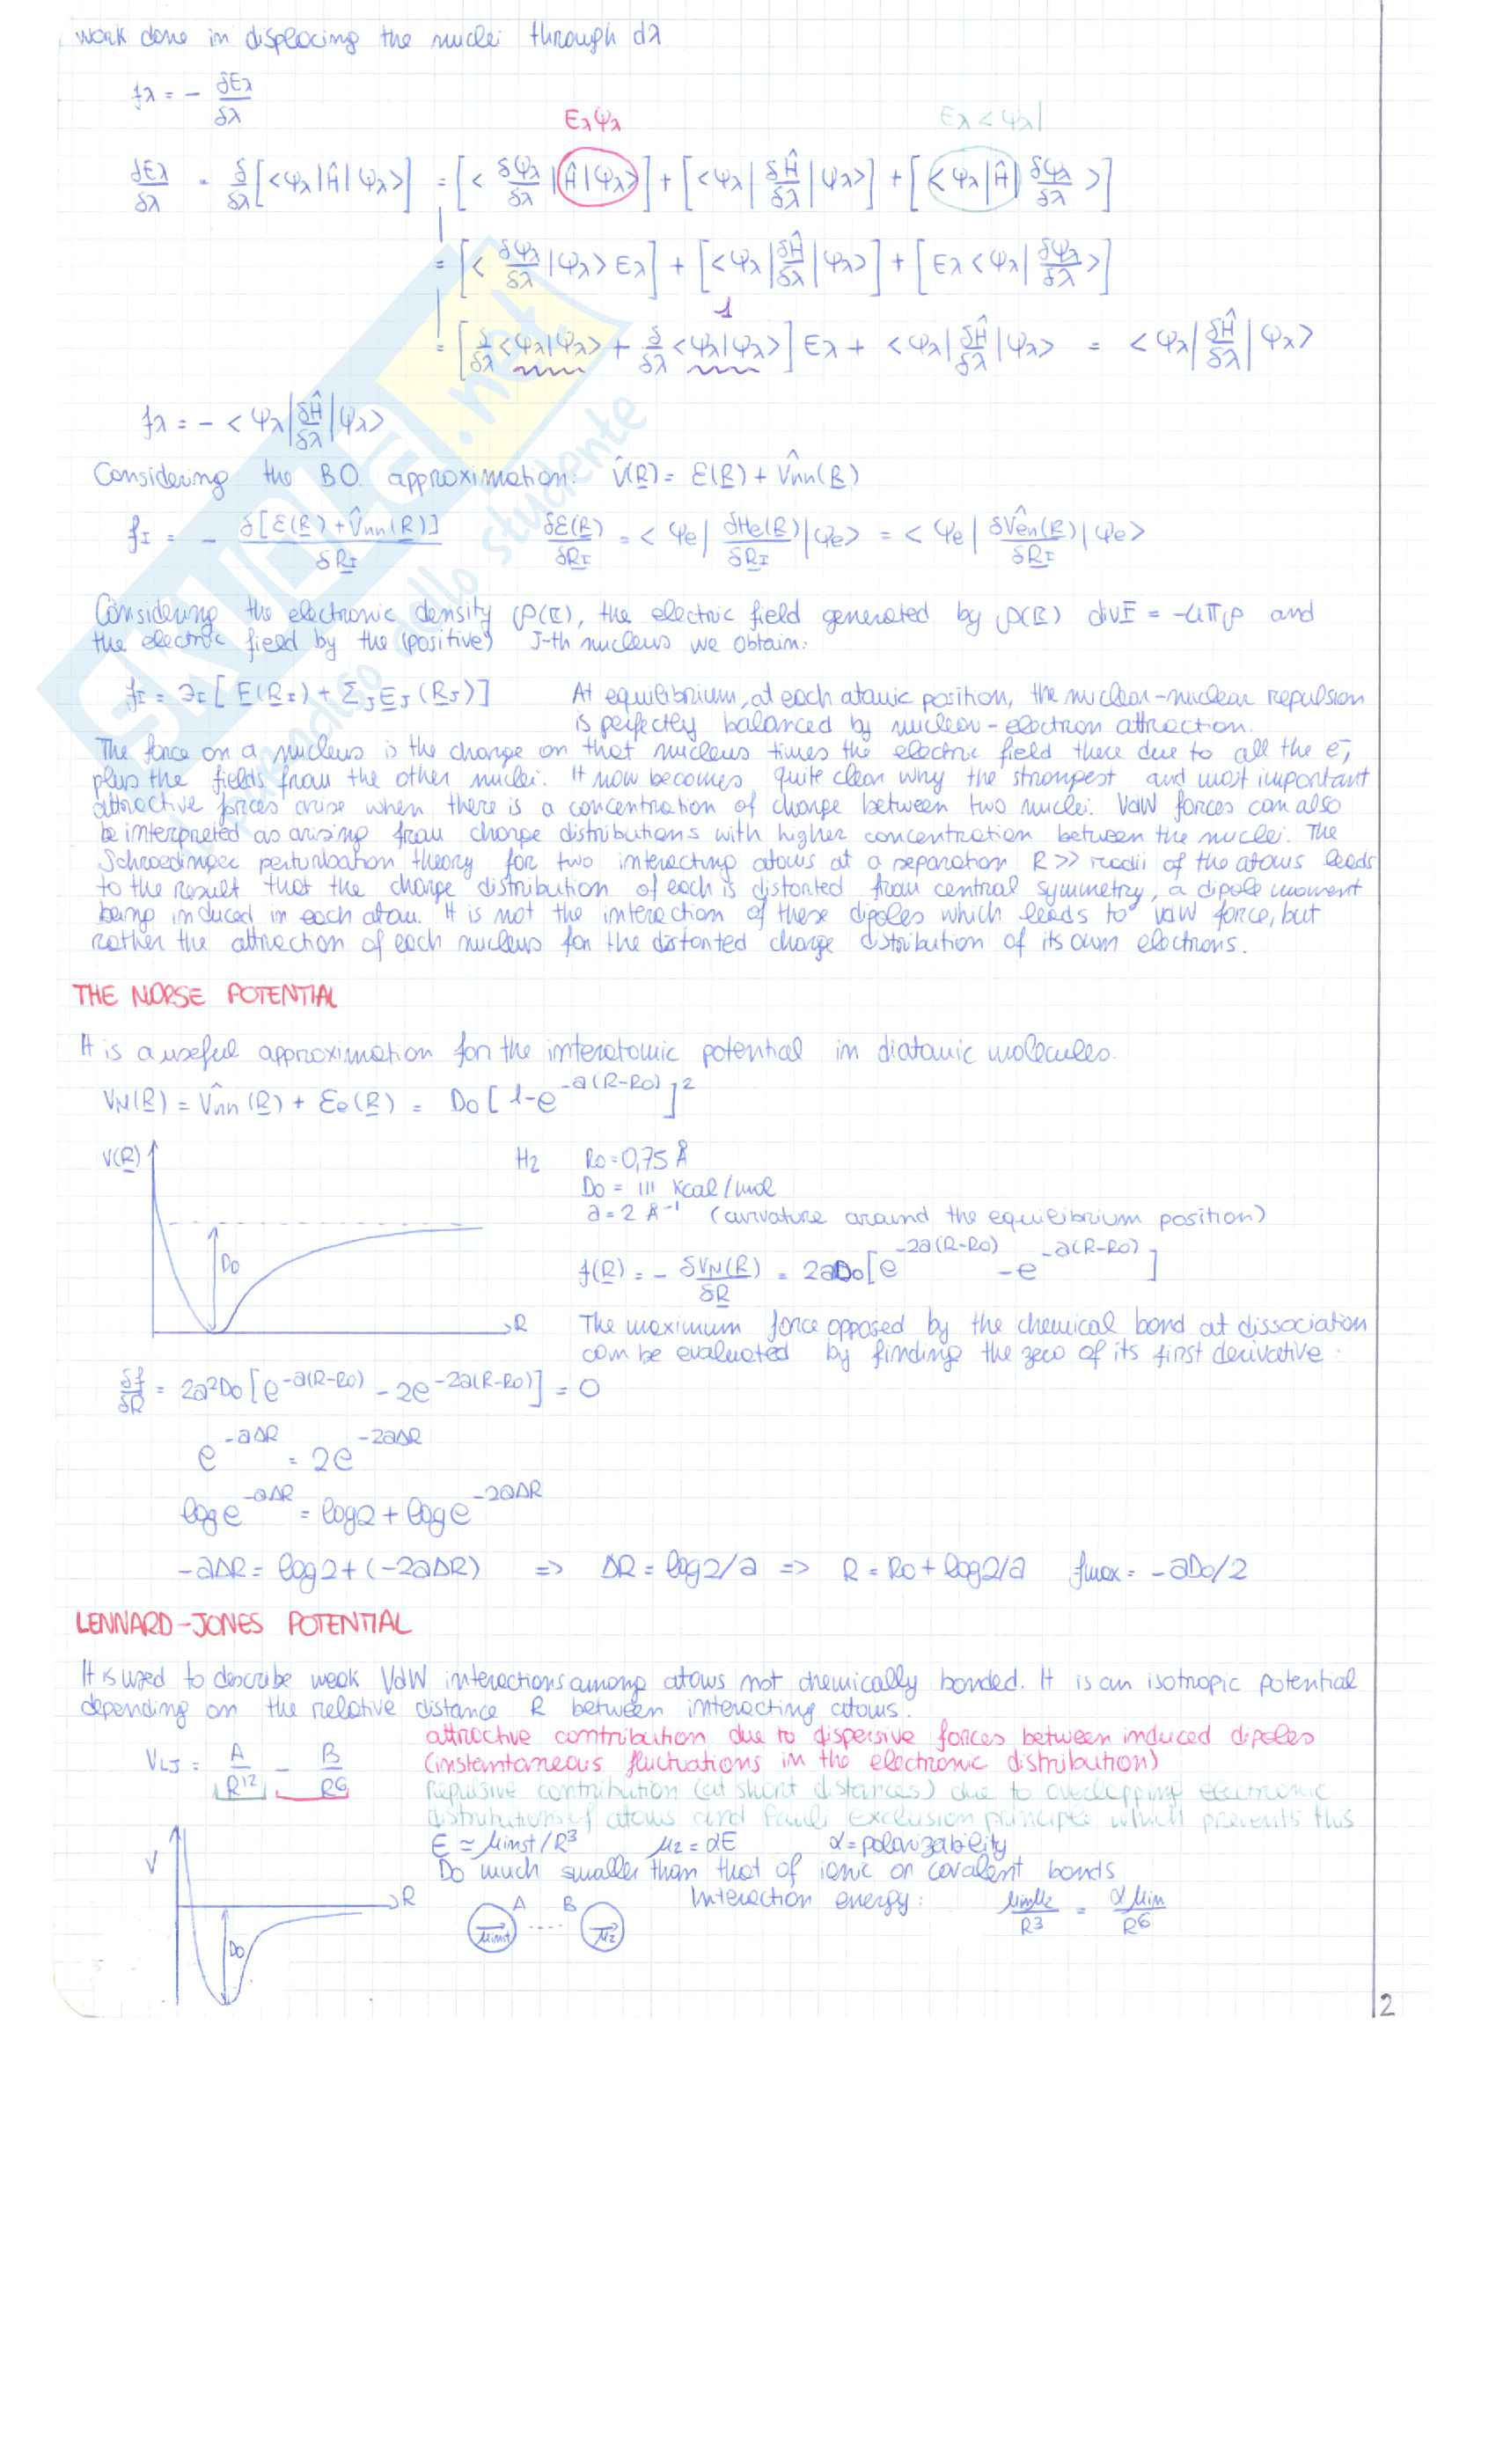 work done in displacing the nuclei through dλ
fλ = - δEλ/δλ
Eλψλ Eλ<ψλ|
δEλ/δλ = δ/δλ[<ψλ|Ĥ|ψλ>] = [<δψλ/δλ|Ĥ|ψλ>] + [<ψλ|δĤ/δλ|ψλ>] + [<ψλ|Ĥ|δψλ/δλ>]
= [<δψλ/δλ|ψλ>Eλ] + [<ψλ|δĤ/δλ|ψλ>] + [Eλ<ψλ|δψλ/δλ>]
1
= [δ/δλ<ψλ|ψλ> + δ/δλ<ψλ|ψλ>]Eλ + <ψλ|δĤ/δλ|ψλ> = <ψλ|δĤ/δλ|ψλ>
fλ = - <ψλ|δĤ/δλ|ψλ>
Considering the BO approximation: V̂(R) = ε(R) + V̂nn(R)
fI = - δ[ε(R) + V̂nn(R)]/δRI δε(R)/δRI = <ψe|δHe(R)/δRI|ψe> = <ψe|δV̂en(R)/δRI|ψe>
Considering the electronic density ρ(r), the electric field generated by ρ(r) divE = -4πρ and
the electric field by the (positive) J-th nucleus we obtain:
fI = ZI[E(RI) + ΣJ EJ(RJ)] At equilibrium, at each atomic position, the nuclear-nuclear repulsion
is perfectly balanced by nuclear-electron attraction.
The force on a nucleus is the charge on that nucleus times the electric field there due to all the e⁻,
plus the fields from the other nuclei. It now becomes quite clear why the strongest and most important
attractive forces arise when there is a concentration of charge between two nuclei. VdW forces can also
be interpreted as arising from charge distributions with higher concentration between the nuclei. The
Schroedinger perturbation theory for two interacting atoms at a separation R>> radii of the atoms leads
to the result that the charge distribution of each is distorted from central symmetry, a dipole moment
being induced in each atom. It is not the interaction of these dipoles which leads to VdW force, but
rather the attraction of each nucleus for the distorted charge distribution of its own electrons.
THE MORSE POTENTIAL
It is a useful approximation for the interatomic potential in diatomic molecules.
VM(R) = V̂nn(R) + εe(R) = D0[1-e^-a(R-R0)]²
V(R) H2 R0=0,75 Å
D0 = 111 kcal/mol
a=2 Å⁻¹ (curvature around the equilibrium position)
D0
f(R) = - δVM(R)/δR = 2aD0[e^-2a(R-R0) - e^-a(R-R0)]
R The maximum force opposed by the chemical bond at dissociation
can be evaluated by finding the zero of its first derivative:
δf/δR = 2a²D0[e^-a(R-R0) - 2e^-2a(R-R0)] = 0
e^-aΔR = 2e^-2aΔR
log e^-aΔR = log2 + log e^-2aΔR
-aΔR = log2+(-2aΔR) => ΔR = log2/a => R = R0 + log2/a fmax = -aD0/2
LENNARD-JONES POTENTIAL
It is used to describe weak VdW interactions among atoms not chemically bonded. It is an isotropic potential
depending on the relative distance R between interacting atoms.
attractive contribution due to dispersive forces between induced dipoles
VLJ = A/R¹² - B/R⁶ (instantaneous fluctuations in the electronic distribution)
repulsive contribution (at short distances) due to overlapping electronic
distributions of atoms and Pauli exclusion principle which prevents this
E ≃ μinst/R³ μ2 = αE α=polarizability
V D0 much smaller than that of ionic or covalent bonds
R A B Interaction energy: μinμ2/R³ = αμin/R⁶
μinst .... μ2
D0
2
SKUOLA.net